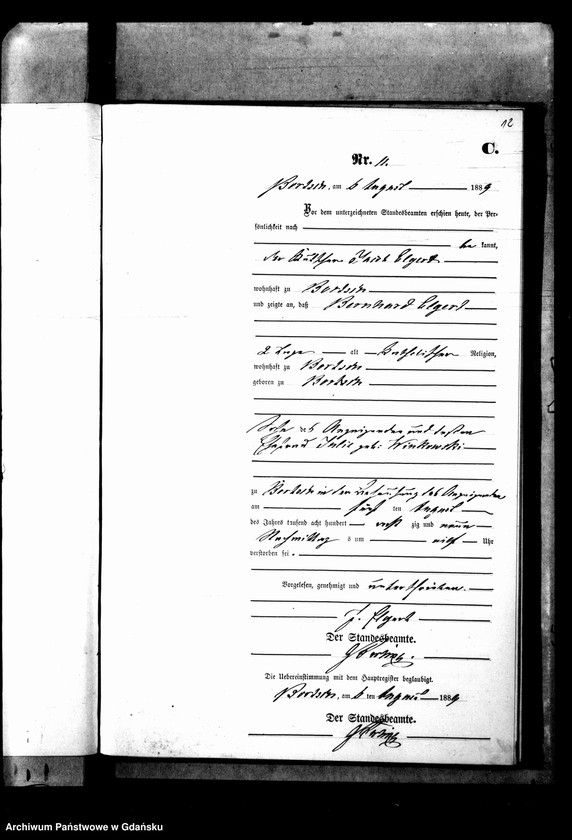 12
C.
Nr. 11.
am 6 August 1889
Vor dem unterzeichneten Standesbeamten erschien heute, der Per-
sönlichkeit nach
be kannt,
der Elgert
wohnhaft zu
und zeigte an, daß Bernhard Elgert
2 Tage alt katholischer Religion,
wohnhaft zu
geboren zu
Sohn des Anzeigenden und dessen
Ehefrau Julie geb: Winkowski
zu in der Behausung des Anzeigenden
am fünf ten August
des Jahres tausend acht hundert acht zig und neun
Nachmittag s um Uhr
verstorben sei.
Vorgelesen, genehmigt und unterschrieben.
J. Elgert
Der Standesbeamte.
Die Uebereinstimmung mit dem Hauptregister beglaubigt.
am 6 ten August 1889
Der Standesbeamte.
Archiwum Państwowe w Gdańsku